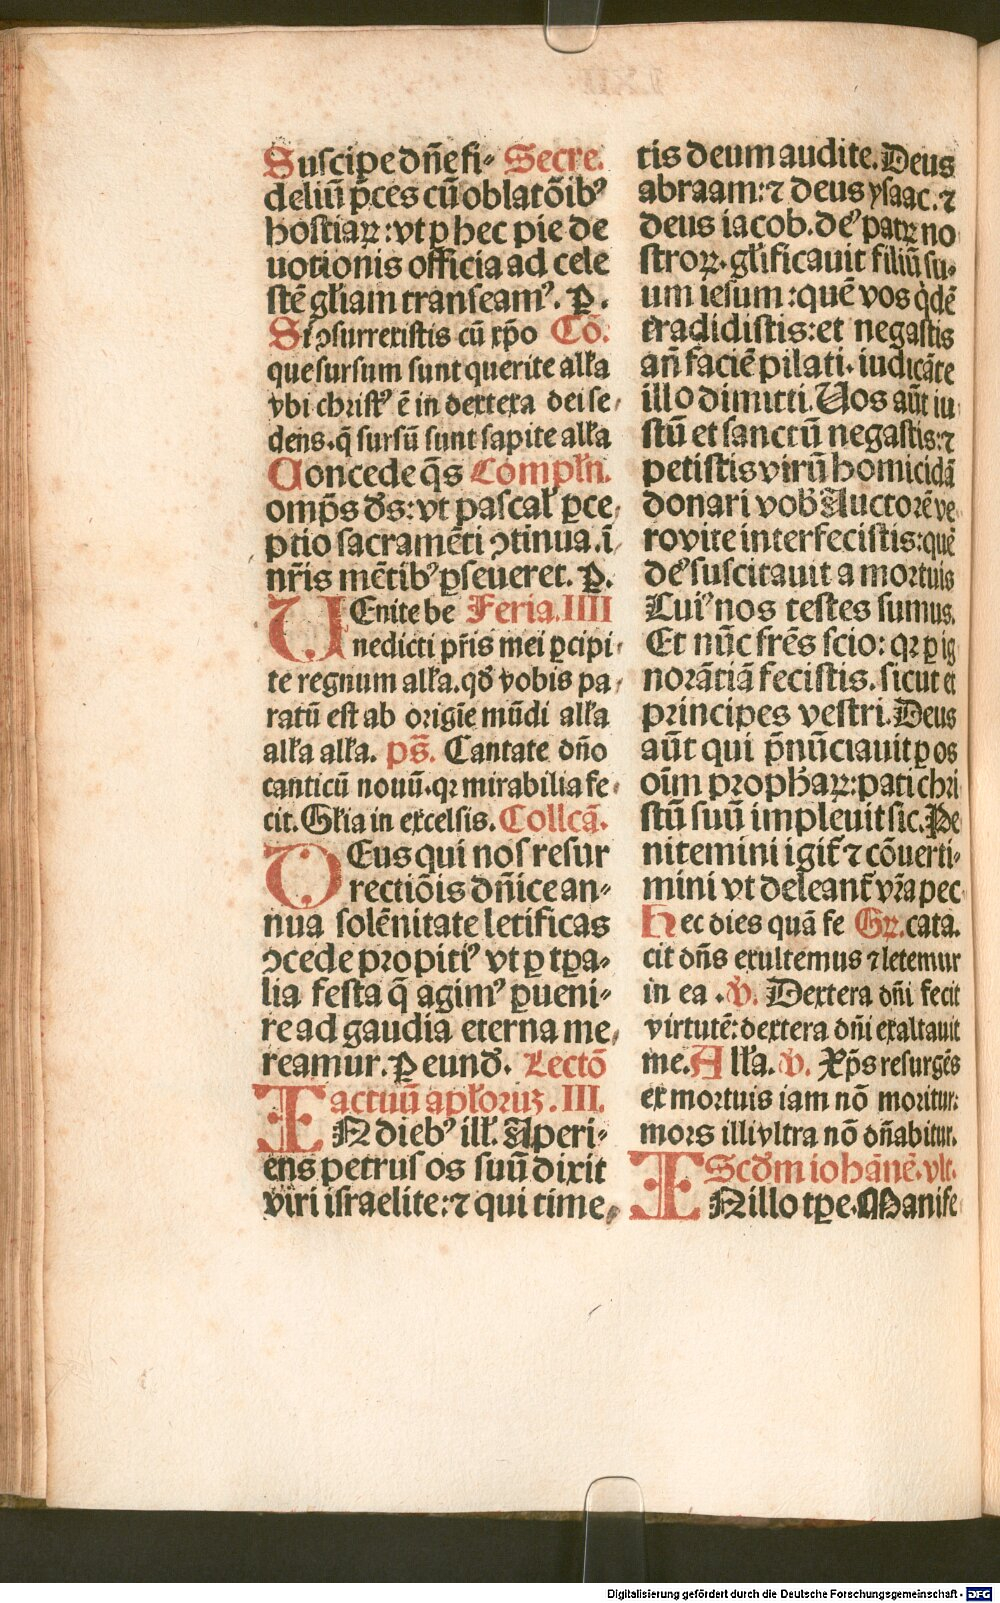 Suscipe dn̄e fi⸗ Secre.
deliū p̄ces cū oblatōibꝰ
hostiaꝝ: vt ꝑ hec pie de
uotionis officia ad cele
stē gl̄iam transeamꝰ. P̱.
Si ↄsurrexistis cū xp̄o Cō.
que sursum sunt querite all̄a
vbi christꝰ ē in dextera dei se⸗
dens. q̄ sursū sunt sapite all̄a
Concede q̄s Compl̄n.
omp̄s ds̄: vt pascal̄ ꝑce⸗
ptio sacramēti ↄtinua. ī
nr̄is mētibꝰ ꝑseueret. P̱.
VEnite be Feria. IIII
nedicti pr̄is mei ꝑcipi⸗
te regnum all̄a. qd̄ vobis pa⸗
ratū est ab origīe mūdi all̄a
all̄a all̄a. ps̄. Cantate dn̄o
canticū nouū. qꝛ mirabilia fe⸗
cit. Gl̄ia in excelsis. Collcā.
DEus qui nos resur
rectiōis dn̄ice an⸗
nua solēnitate letificas
ↄcede propitiꝰ vt ꝑ tꝑa⸗
lia festa q̄ agimꝰ ꝑueni⸗
re ad gaudia eterna me⸗
reamur. P̱ eund̄. Lectō
actuū apl̄oruꝫ. III.
IN diebꝰ ill̄. Aperi⸗
ens petrus os suū dixit
viri israelite: ⁊ qui time⸗
tis deum audite. Deus
abraam: ⁊ deus ysaac. ⁊
deus iacob. deꝰ patꝝ no
stroꝝ. gl̄ificauit filiū su⸗
um iesum: quē vos q̇dē
tradidistis: et negastis
an̄ faciē pilati. iudicāte
illo dimitti. Uos aūt iu
stū et sanctū negastis: ⁊
petistis virū homicidā
donari vob̄ Auctorē ve
ro vite interfecistis: quē
deꝰ suscitauit a mortuis
Cuiꝰ nos testes sumus.
Et nūc frēs scio: qꝛ ꝑ ig
norātiā fecistis. sicut et
principes vestri. Deus
aūt qui p̄nūciauit ꝑ os
oīm prophaꝝ: pati chri
stū suū impleuit sic. Pe
nitemini igit̄ ⁊ cōuerti⸗
mini vt deleant̄ vr̄a pec
Hec dies quā fe Gꝝ. cata.
cit dn̄s exultemus ⁊ letemur
in ea. v̄. Dextera dn̄i fecit
virtutē: dextera dn̄i exaltauit
me. All̄a. v̄. Xp̄s resurgēs
ex mortuis iam nō moritur:
mors illi vltra nō dn̄abitur.
Scd̄m iohānē. vlt.
IN illo tꝑe. Manife
Digitalisierung gefördert durch die Deutsche Forschungsgemeinschaft - DFG